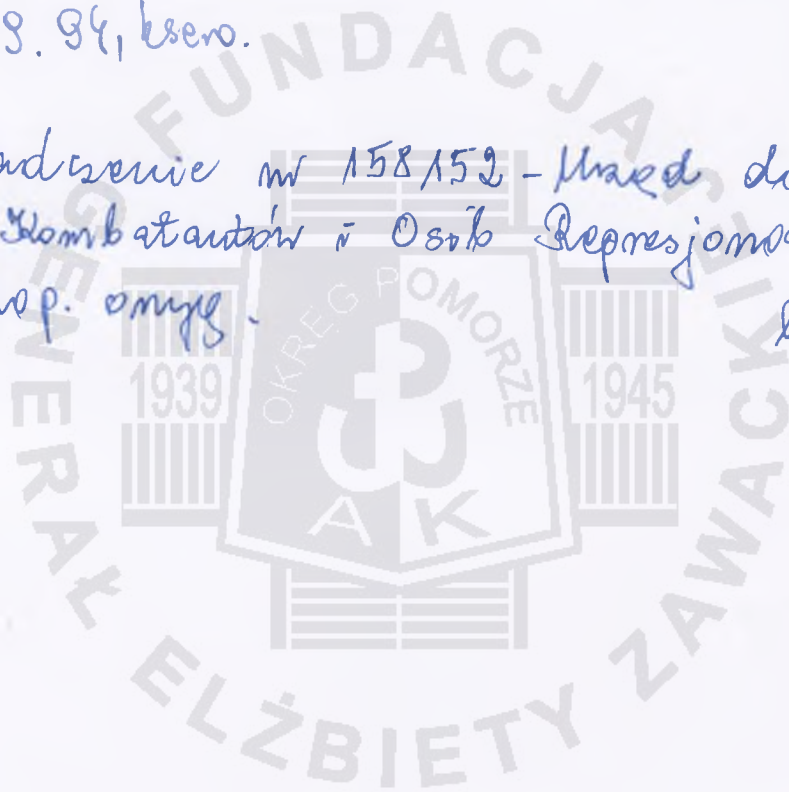 9.94, ksero.
adczenie nr 158152 - Urząd do
Kombatantów i Osób Represjono
op. oryg.
FUNDACJA GENERAŁ ELŻBIETY ZAWACKIEJ
OKRĘG POMORZE
1939
1945
AK